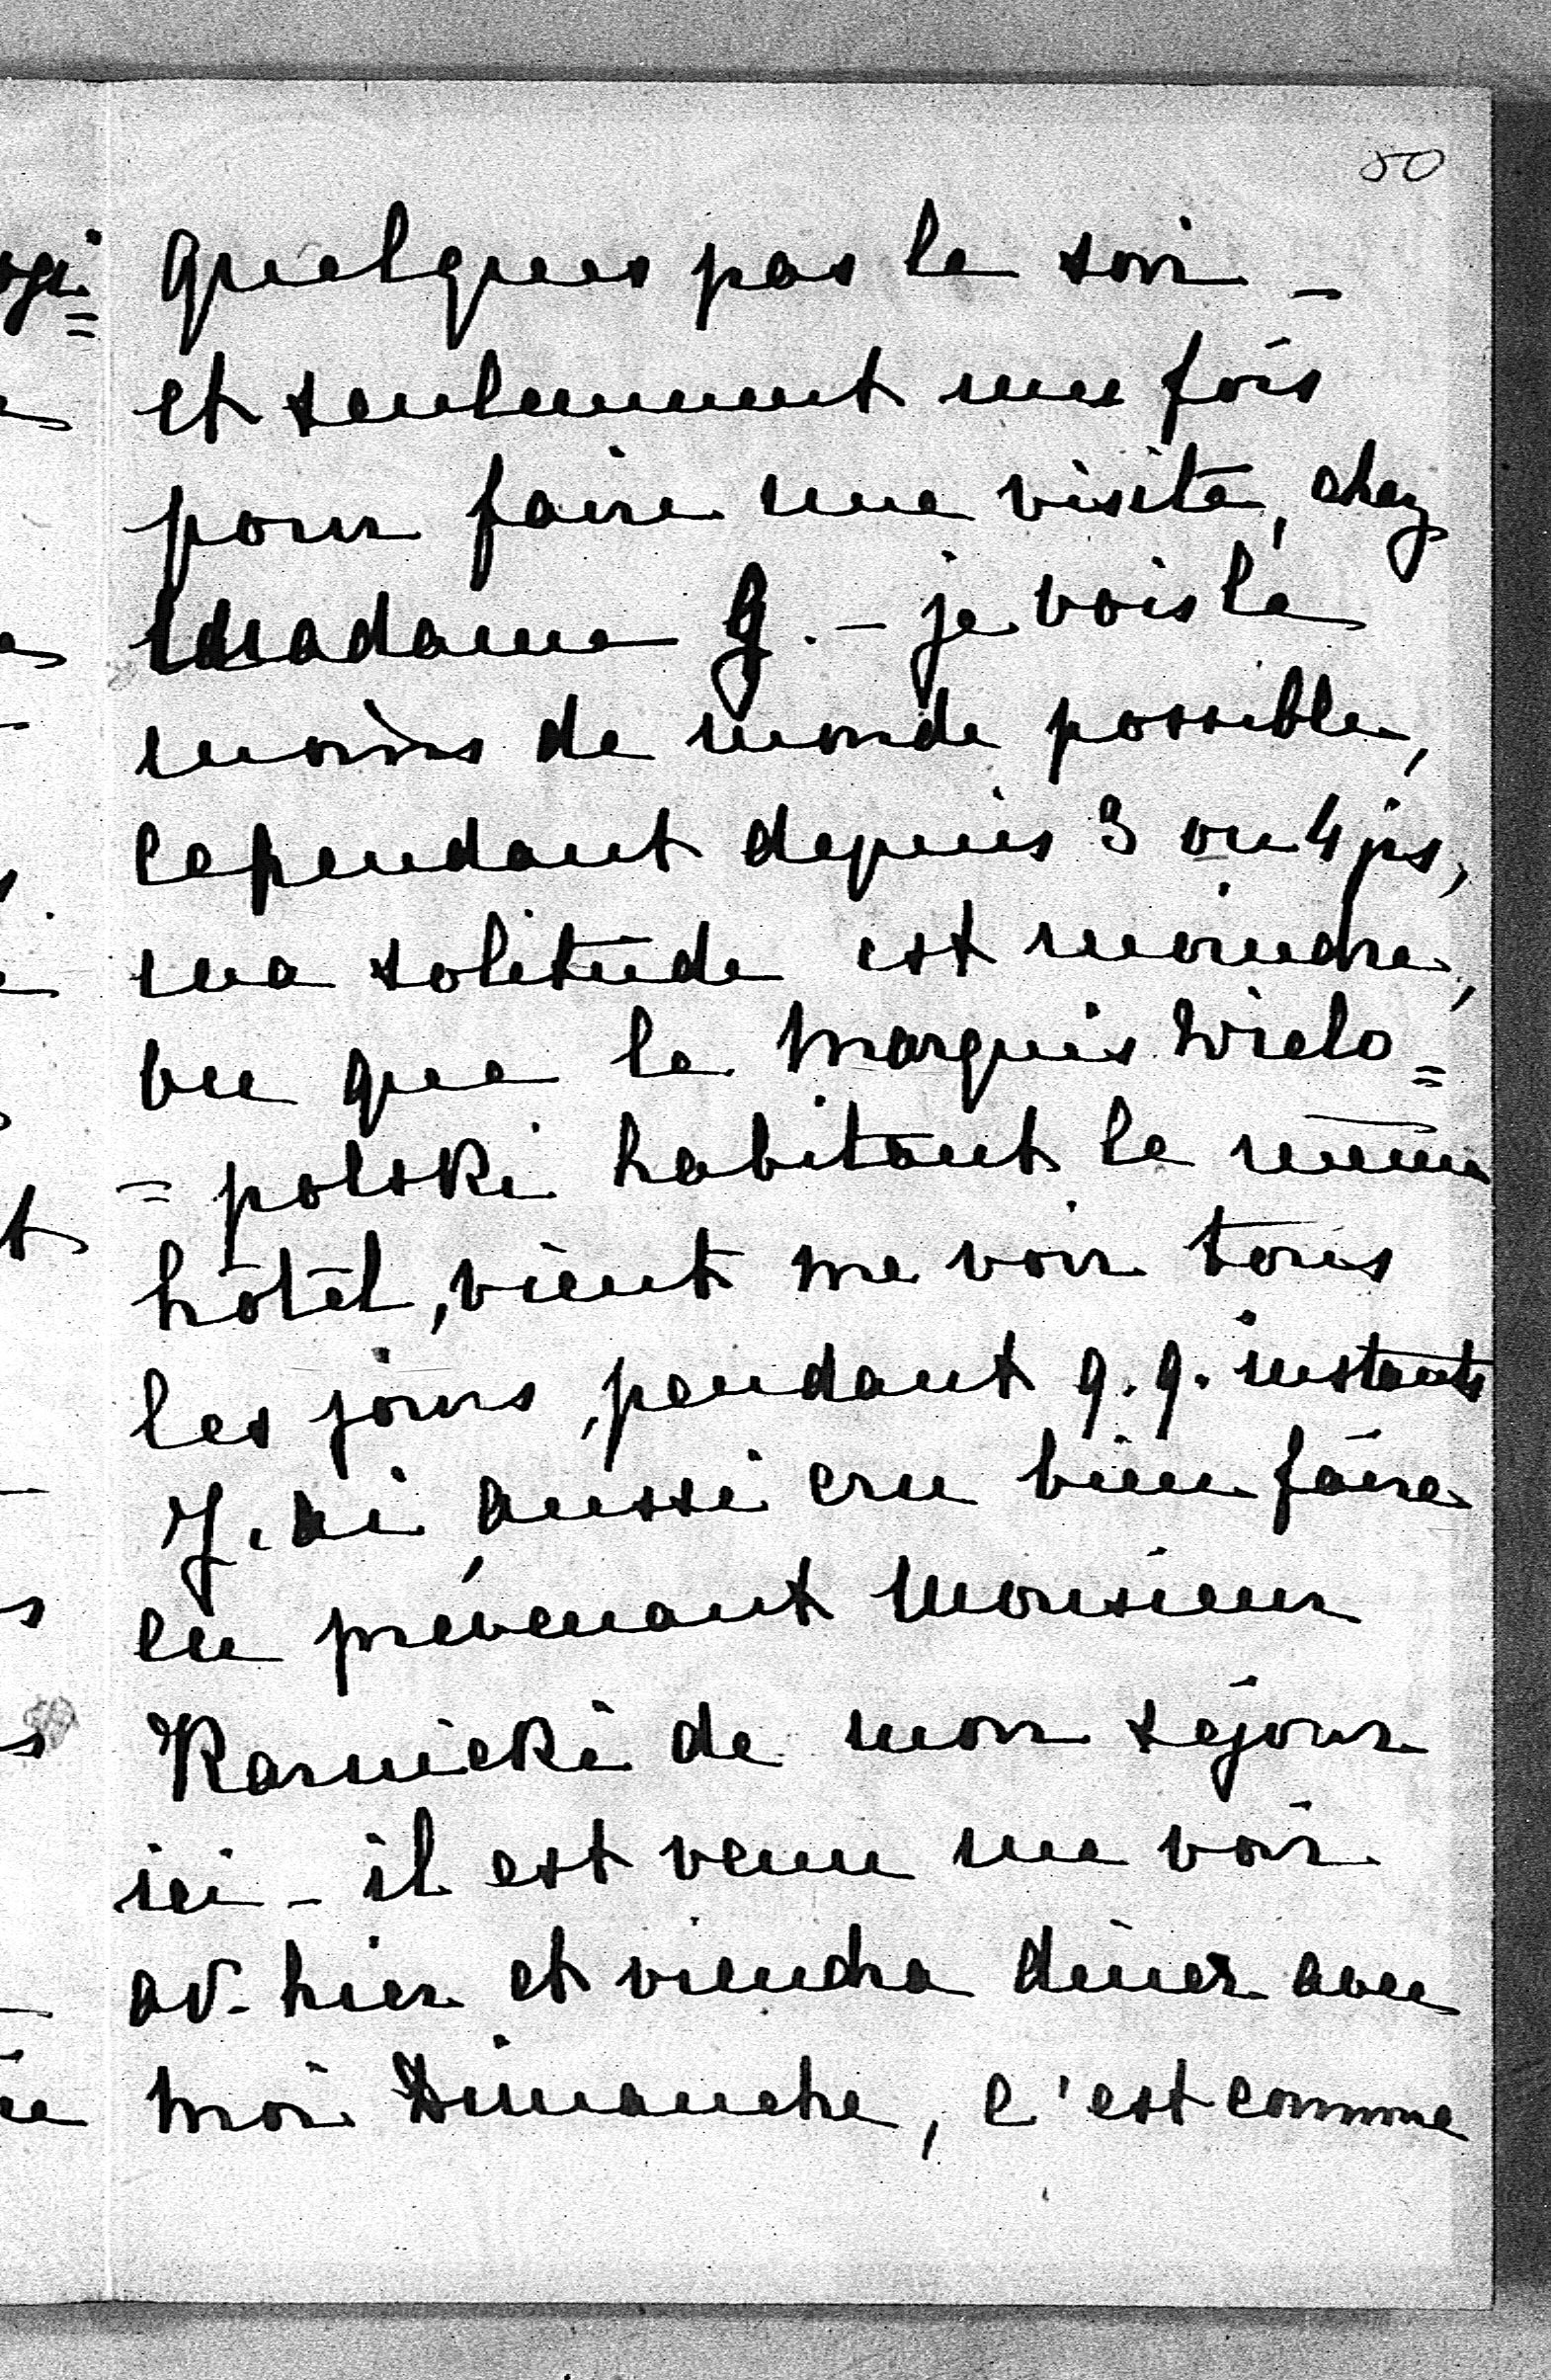 50
quelques pas le soir –
et seulement une fois
pour faire une visite, chez
Madame G. – je vois le
moins de monde possible,
cependant depuis 3 ou 4 jrs,
ma solitude est moindre,
vu que le Marquis Wielo=
=polski habitant le même
hôtel, vient me voir tous
les jours, pendant q.q. instants
J'ai aussi cru bien faire
en prévenant Monsieur
Karnicki de mon séjour
ici – il est venu me voir
av. hier et viendra dîner avec
moi Dimanche, c'est comme